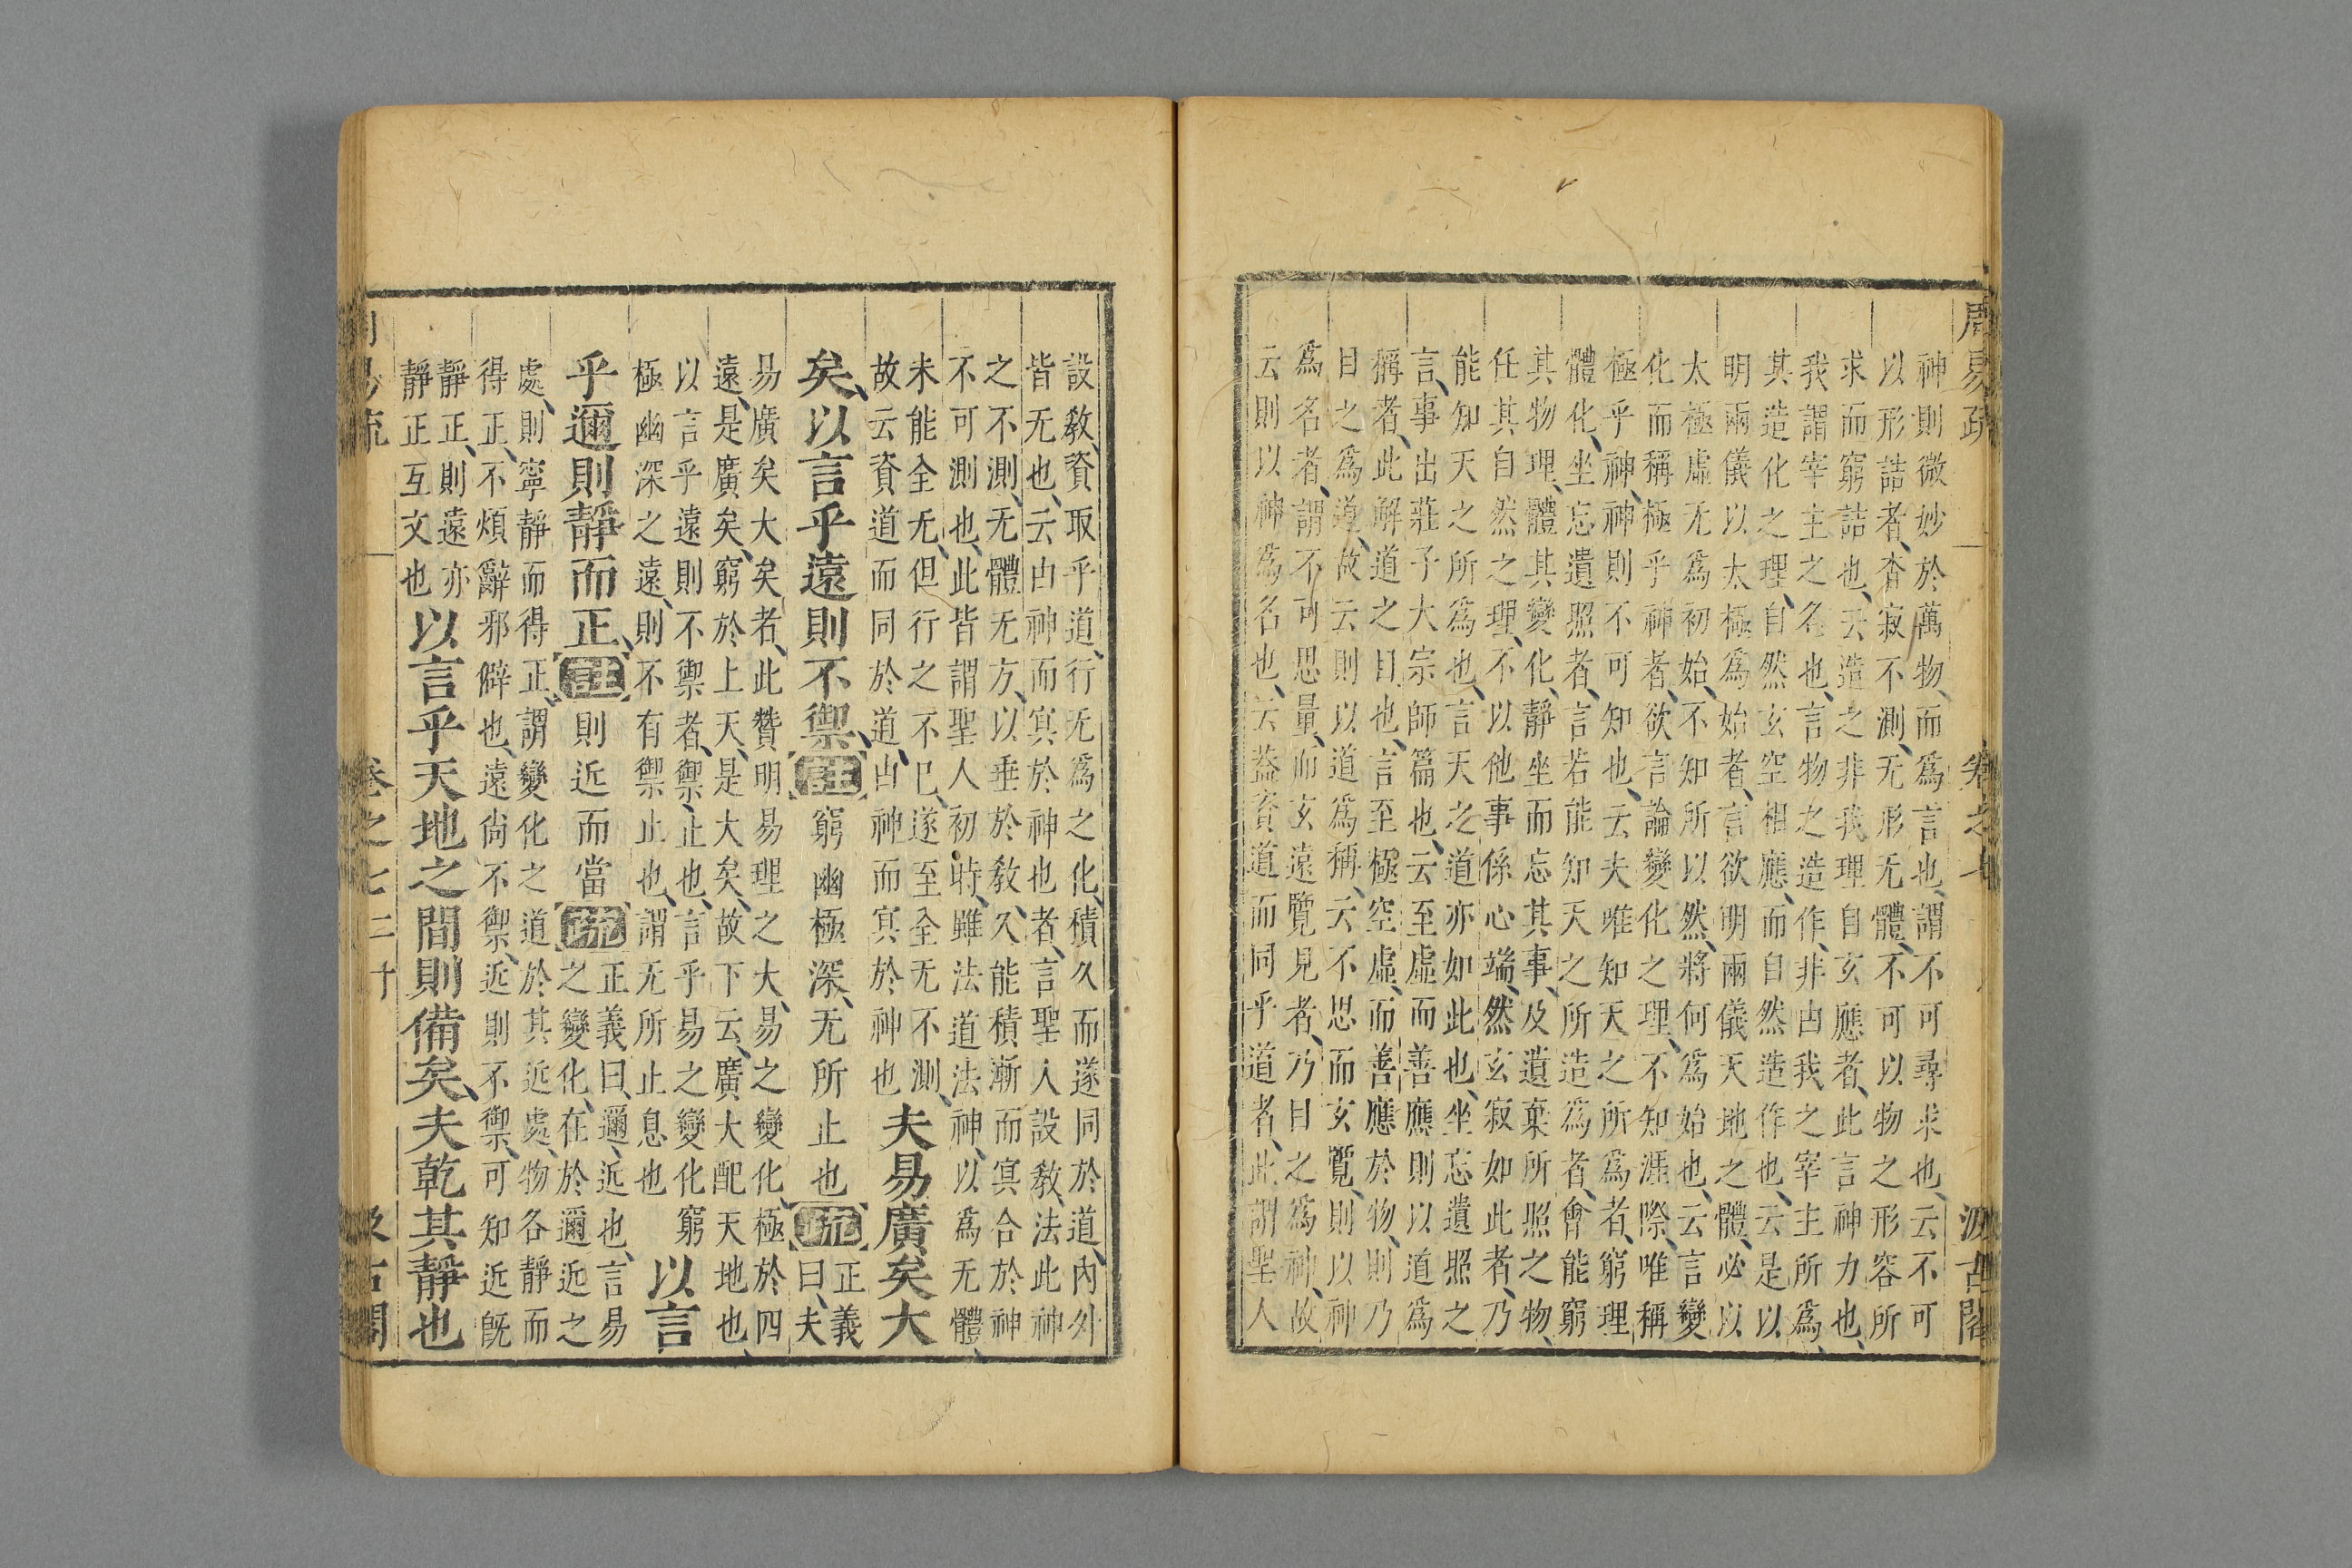 周易疏　卷之七　汲古閣
神則微妙於萬物、而爲言也、謂不可尋求也、云不可
以形詰者、杳寂不測、无形无體、不可以物之形容所
求而窮詰也、云造之非我理自玄應者、此言神力也、
我謂宰主之名也、言物之造作、非由我之宰主所爲、
其造化之理、自然玄空相應、而自然造作也、云是以
明兩儀以太極爲始者、言欲明兩儀天地之體、必以
太極虛无爲初始、不知所以然、將何爲始也、云言變
化而稱極乎神者、欲言論變化之理、不知涯際、唯稱
極乎神、神則不可知也、云夫唯知天之所爲者、窮理
體化、坐忘遺照者、言若能知天之所造爲者、會能窮
其物理、體其變化、靜坐而忘其事、及遺棄所照之物、
任其自然之理、不以他事係心端、然玄寂如此者、乃
能知天之所爲也、言天之道亦如此也、坐忘遺照之
言、事出莊子大宗師篇也、云至虛而善應則以道爲
稱者、此解道之目也、言至極空虛、而善應於物、則乃
目之爲道、故云則以道爲稱、云不思而玄覽、則以神
爲名者、謂不可思量、而玄遠覽見者、乃目之爲神、故
云則以神爲名也、云葢資道而同乎道者、此謂聖人
設教、資取乎道、行无爲之化、積久而遂同於道、內外
皆无也、云由神而冥於神也者、言聖人設教、法此神
之不測、无體无方、以垂於教、久能積漸而冥合於神
不可測也、此皆謂聖人初時、雖法道法神、以爲无體、
未能全无、但行之不已、遂至全无不測、
故云資道而同於道、由神而冥於神也
夫易廣矣大
矣、以言乎遠則不禦、注窮幽極深、无所止也疏正義
曰、夫
易廣矣大矣者、此贊明易理之大、易之變化、極於四
遠、是廣矣、窮於上天、是大矣、故下云、廣大配天地也、
以言乎遠則不禦者、禦、止也、言乎易之變化窮
極幽深之遠、則不有禦止也、謂无所止息也
以言
乎邇則靜而正、注則近而當疏正義曰、邇、近也、言易
之變化、在於邇近之
處、則寧靜而得正、謂變化之道於其近處、物各靜而
得正、不煩辭邪僻也、遠尚不禦、近則不禦、可知近旣
靜正、則遠亦
靜正互文也
以言乎天地之間則備矣、夫乾其靜也
周易疏　卷之七　二十　汲古閣